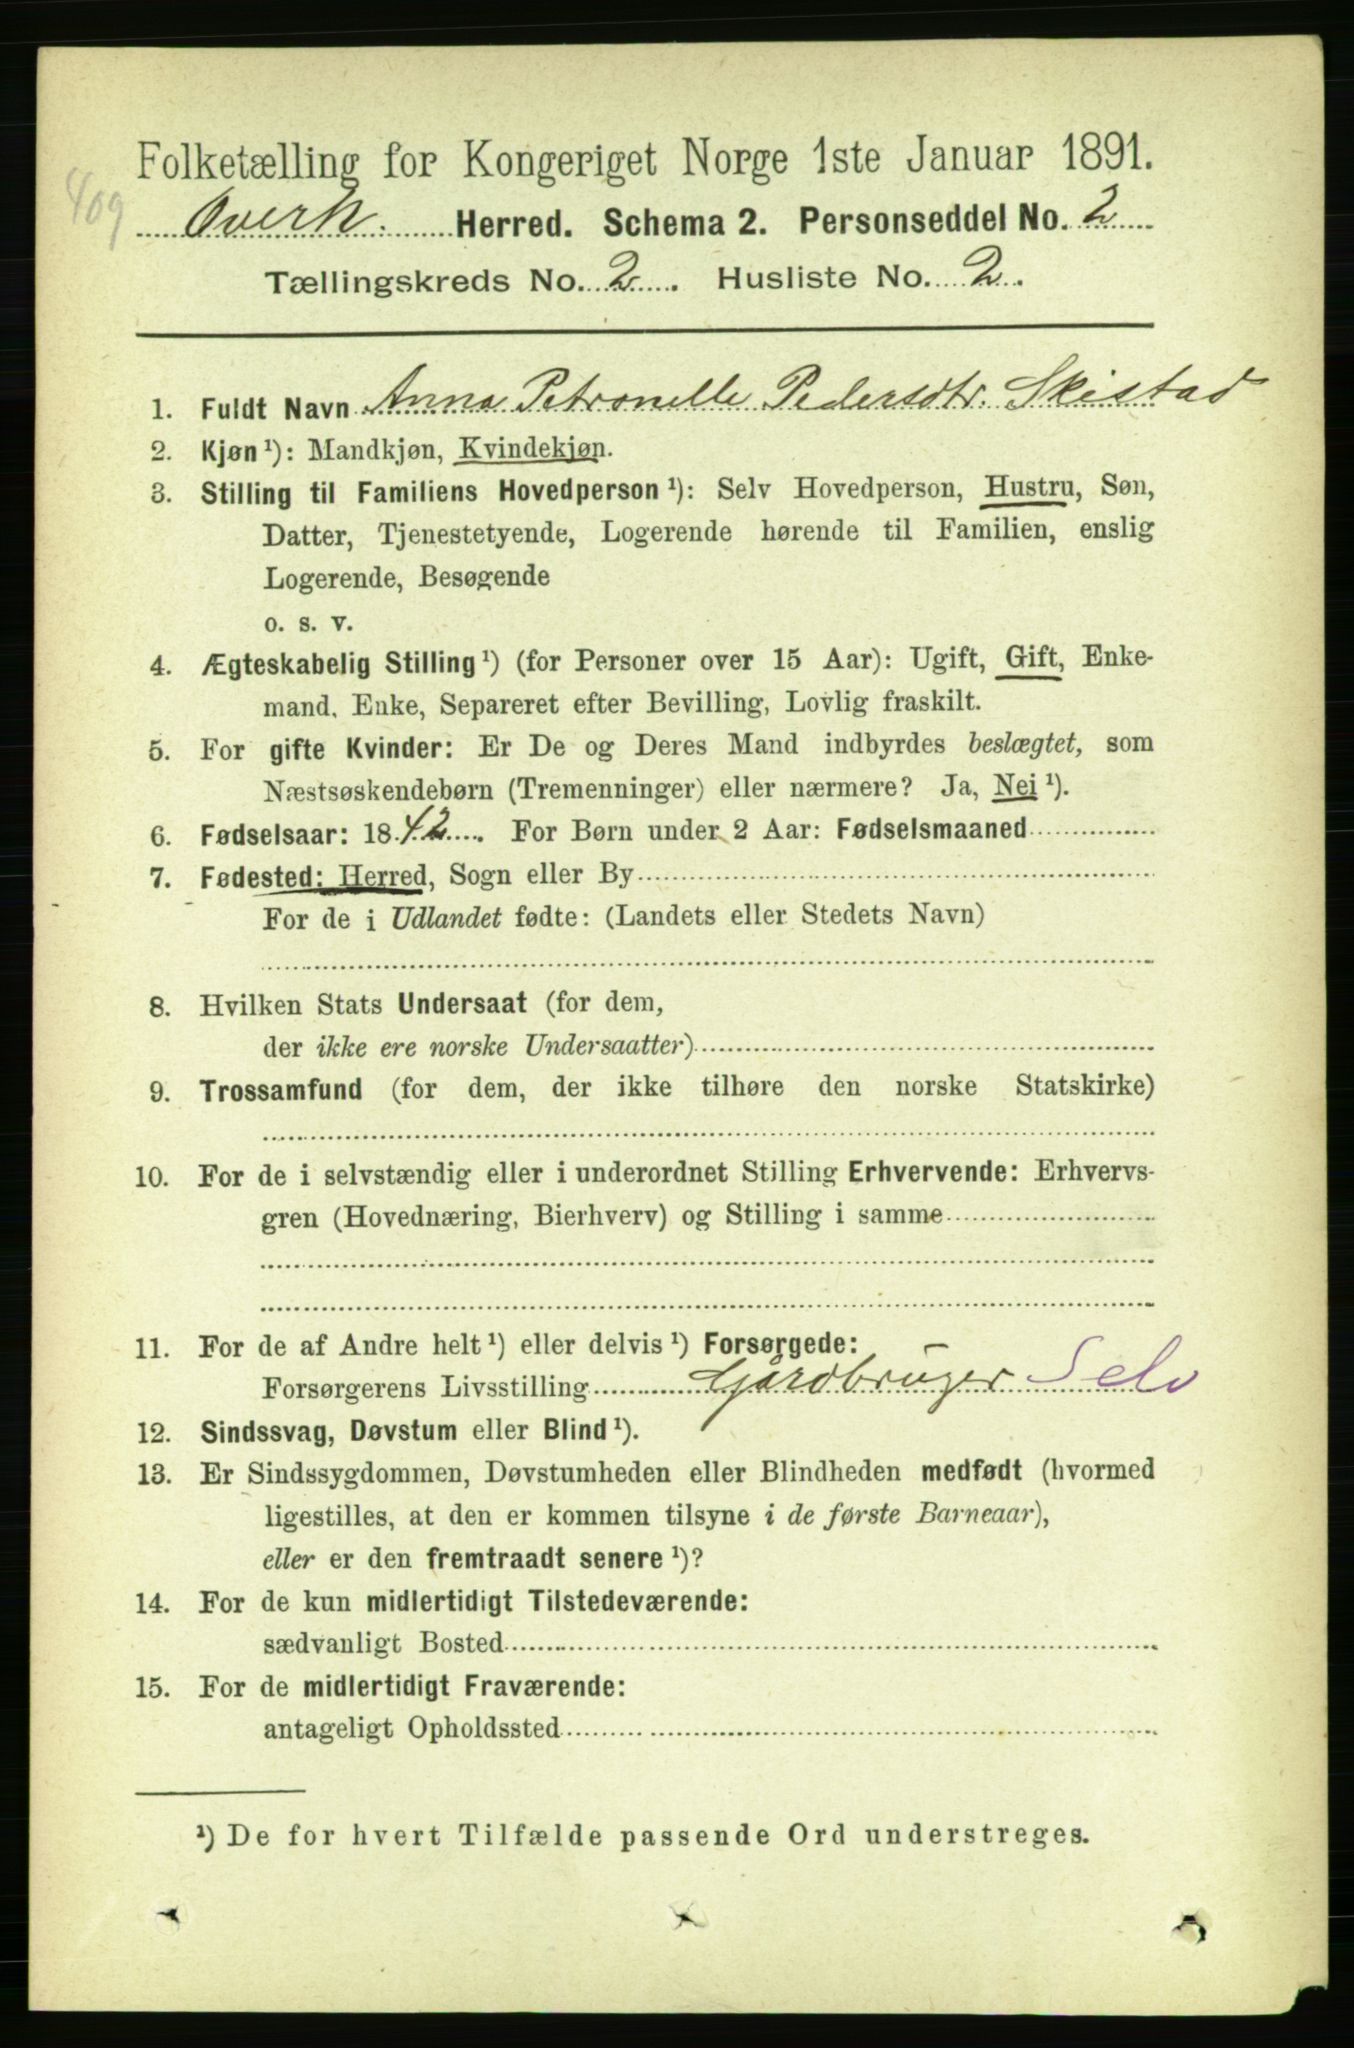 Folketælling for Kongeriget Norge 1ste Januar 1891.
409
Overh. Herred. Schema 2. Personseddel No. 2
Tællingskreds No. 2. Husliste No. 2.
1. Fuldt Navn Anna Petronelle Pedersdtr. Skistad
2. Kjøn ¹): Mandkjøn, Kvindekjøn.
3. Stilling til Familiens Hovedperson ¹): Selv Hovedperson, Hustru, Søn,
Datter, Tjenestetyende, Logerende hørende til Familien, enslig
Logerende, Besøgende
o. s. v.
4. Ægteskabelig Stilling ¹) (for Personer over 15 Aar): Ugift, Gift, Enke-
mand, Enke, Separeret efter Bevilling, Lovlig fraskilt.
5. For gifte Kvinder: Er De og Deres Mand indbyrdes beslægtet, som
Næstsøskendebørn (Tremenninger) eller nærmere? Ja, Nei ¹).
6. Fødselsaar: 1842. For Børn under 2 Aar: Fødselsmaaned
7. Fødested: Herred, Sogn eller By
For de i Udlandet fødte: (Landets eller Stedets Navn)
8. Hvilken Stats Undersaat (for dem,
der ikke ere norske Undersaatter)
9. Trossamfund (for dem, der ikke tilhøre den norske Statskirke)
10. For de i selvstændig eller i underordnet Stilling Erhvervende: Erhvervs-
gren (Hovednæring, Bierhverv) og Stilling i samme
11. For de af Andre helt ¹) eller delvis ¹) Forsørgede:
Forsørgerens Livsstilling Gårdbruger Selv
12. Sindssvag, Døvstum eller Blind ¹).
13. Er Sindssygdommen, Døvstumheden eller Blindheden medfødt (hvormed
ligestilles, at den er kommen tilsyne i de første Barneaar),
eller er den fremtraadt senere ¹)?
14. For de kun midlertidigt Tilstedeværende:
sædvanligt Bosted
15. For de midlertidigt Fraværende:
antageligt Opholdssted
¹) De for hvert Tilfælde passende Ord understreges.